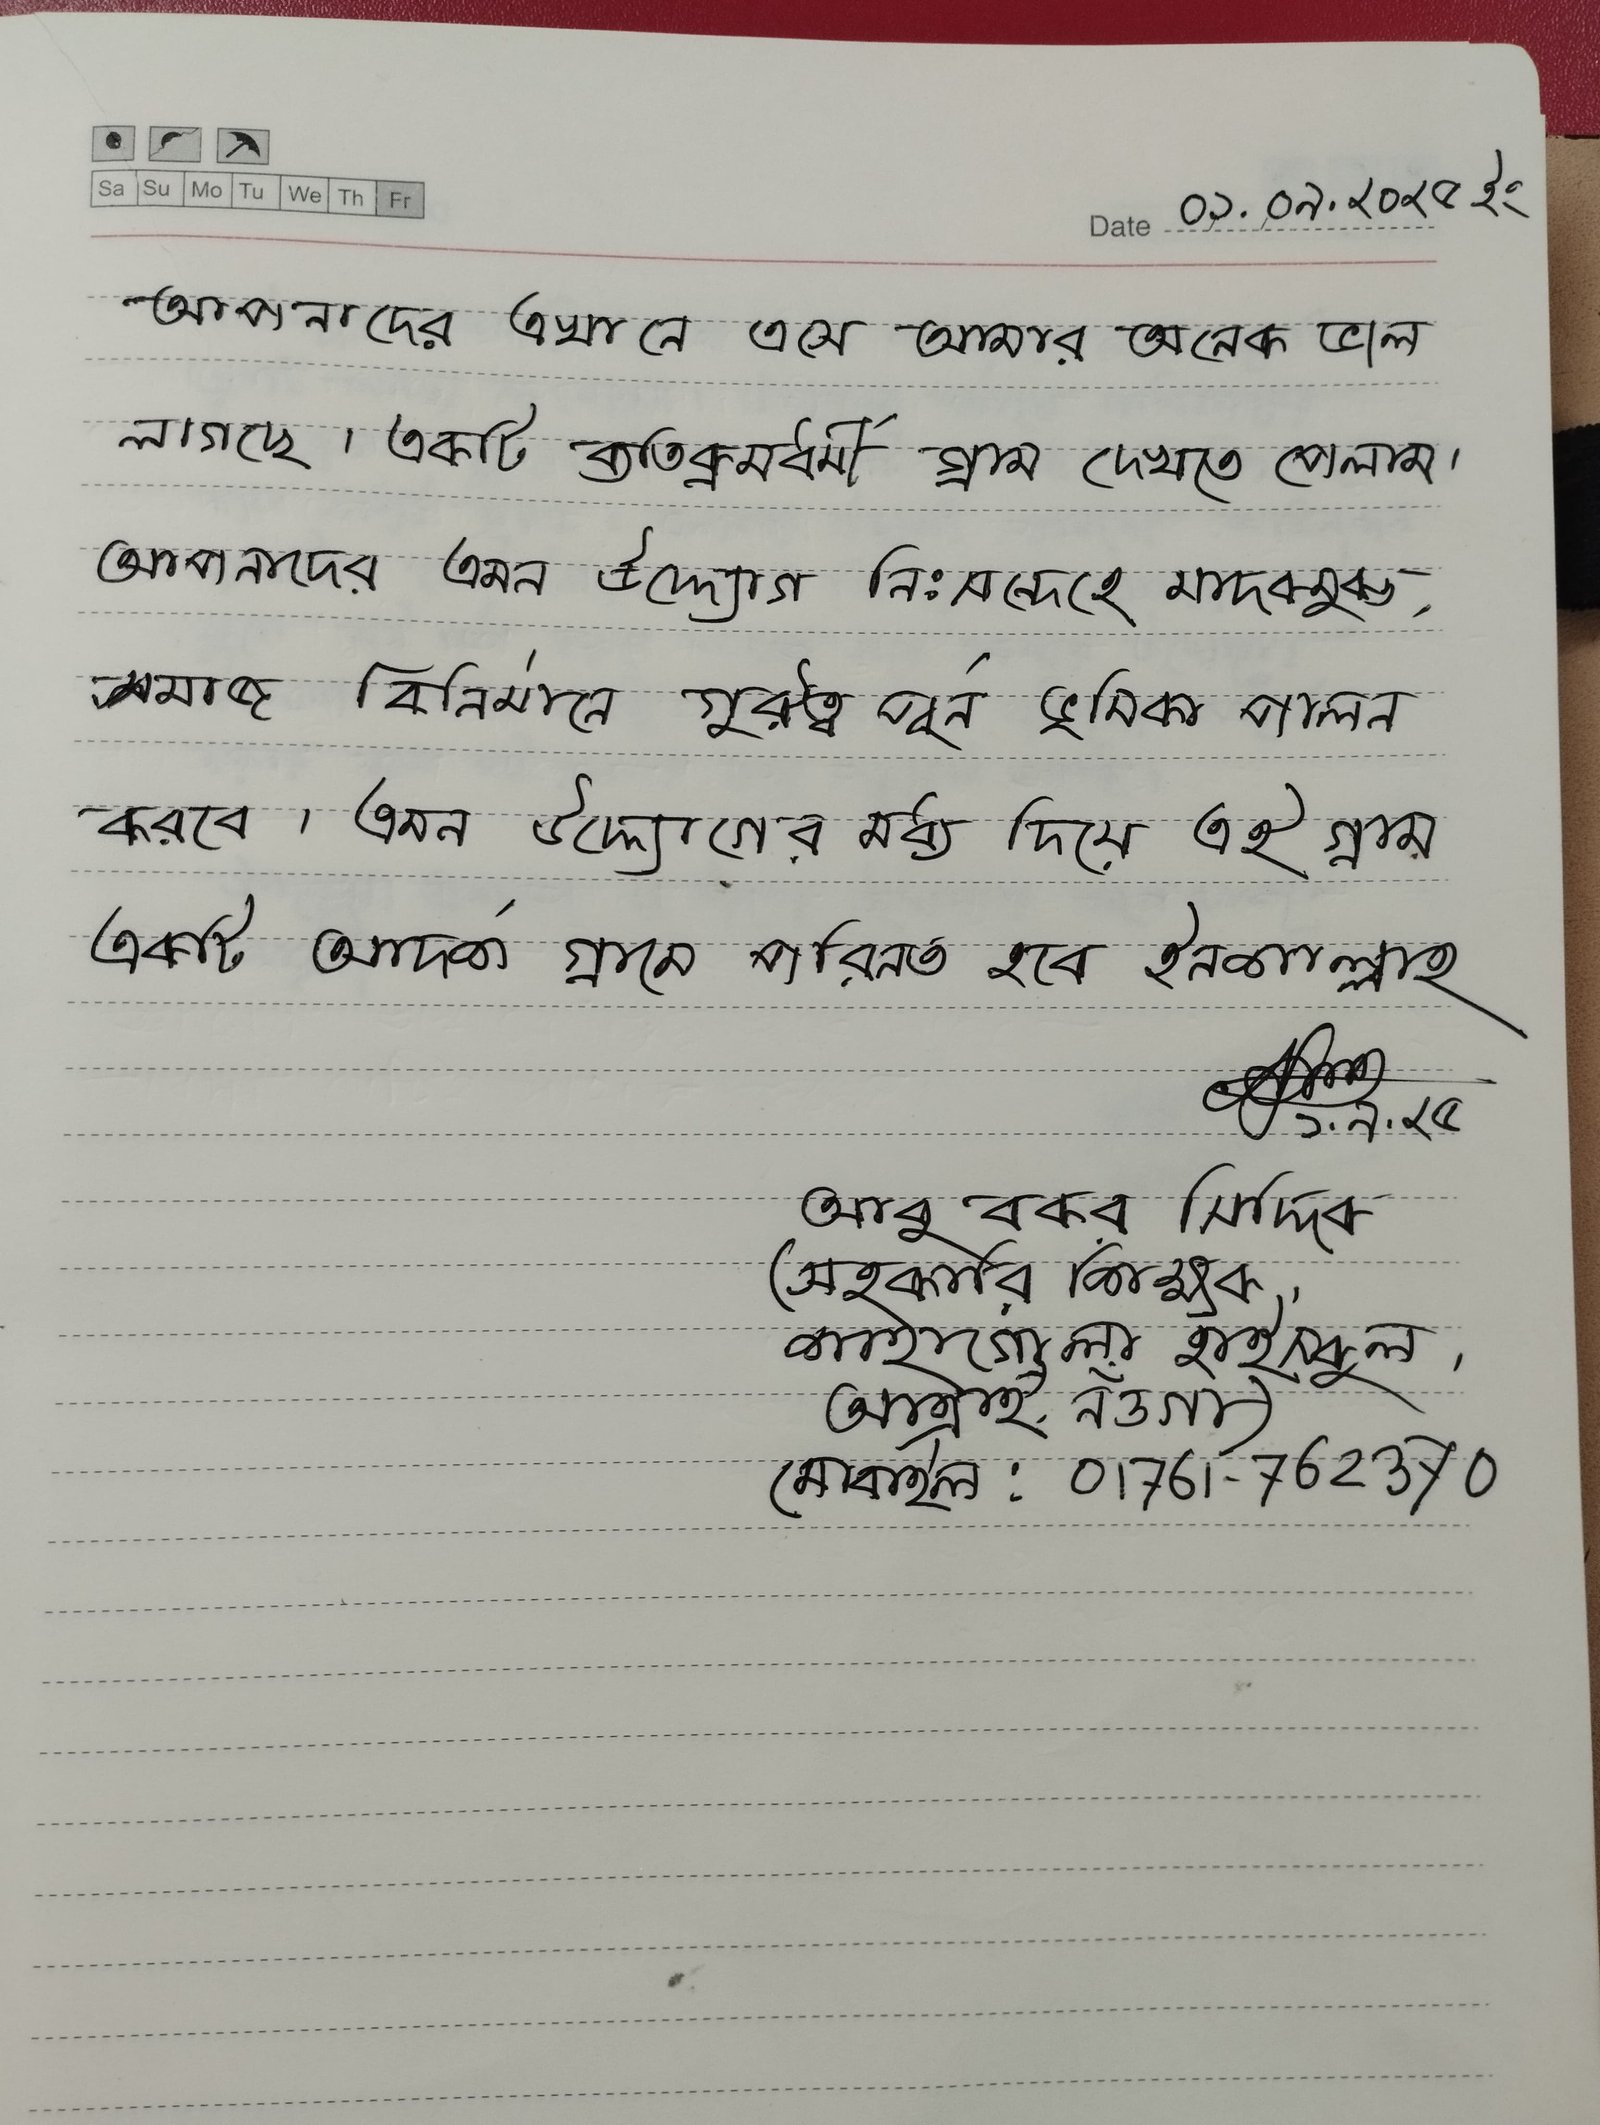 Sa Su Mo Tu We Th Fr
Date ০১.০৯.২০২৫ ইং
আপনাদের এখানে এসে আমার অনেক ভাল
লাগছে। একটি ব্যতিক্রমধর্মী গ্রাম দেখতে পেলাম।
আপনাদের এমন উদ্দ্যোগ নিঃসন্দেহে মাদকমুক্ত,
সমাজ বিনির্মানে গুরুত্ব পূর্ন ভূমিকা পালন
করবে। এমন উদ্দ্যোগের মধ্য দিয়ে এই গ্রাম
একটি আদর্শ গ্রামে পরিনত হবে ইনশাল্লাহ
১.৯.২৫
আবু বকর সিদ্দিক
(সহকারি শিক্ষক,
শাহাগোলা হাইস্কুল,
আত্রাই, নওগাঁ)
মোবাইল: 01761-762370